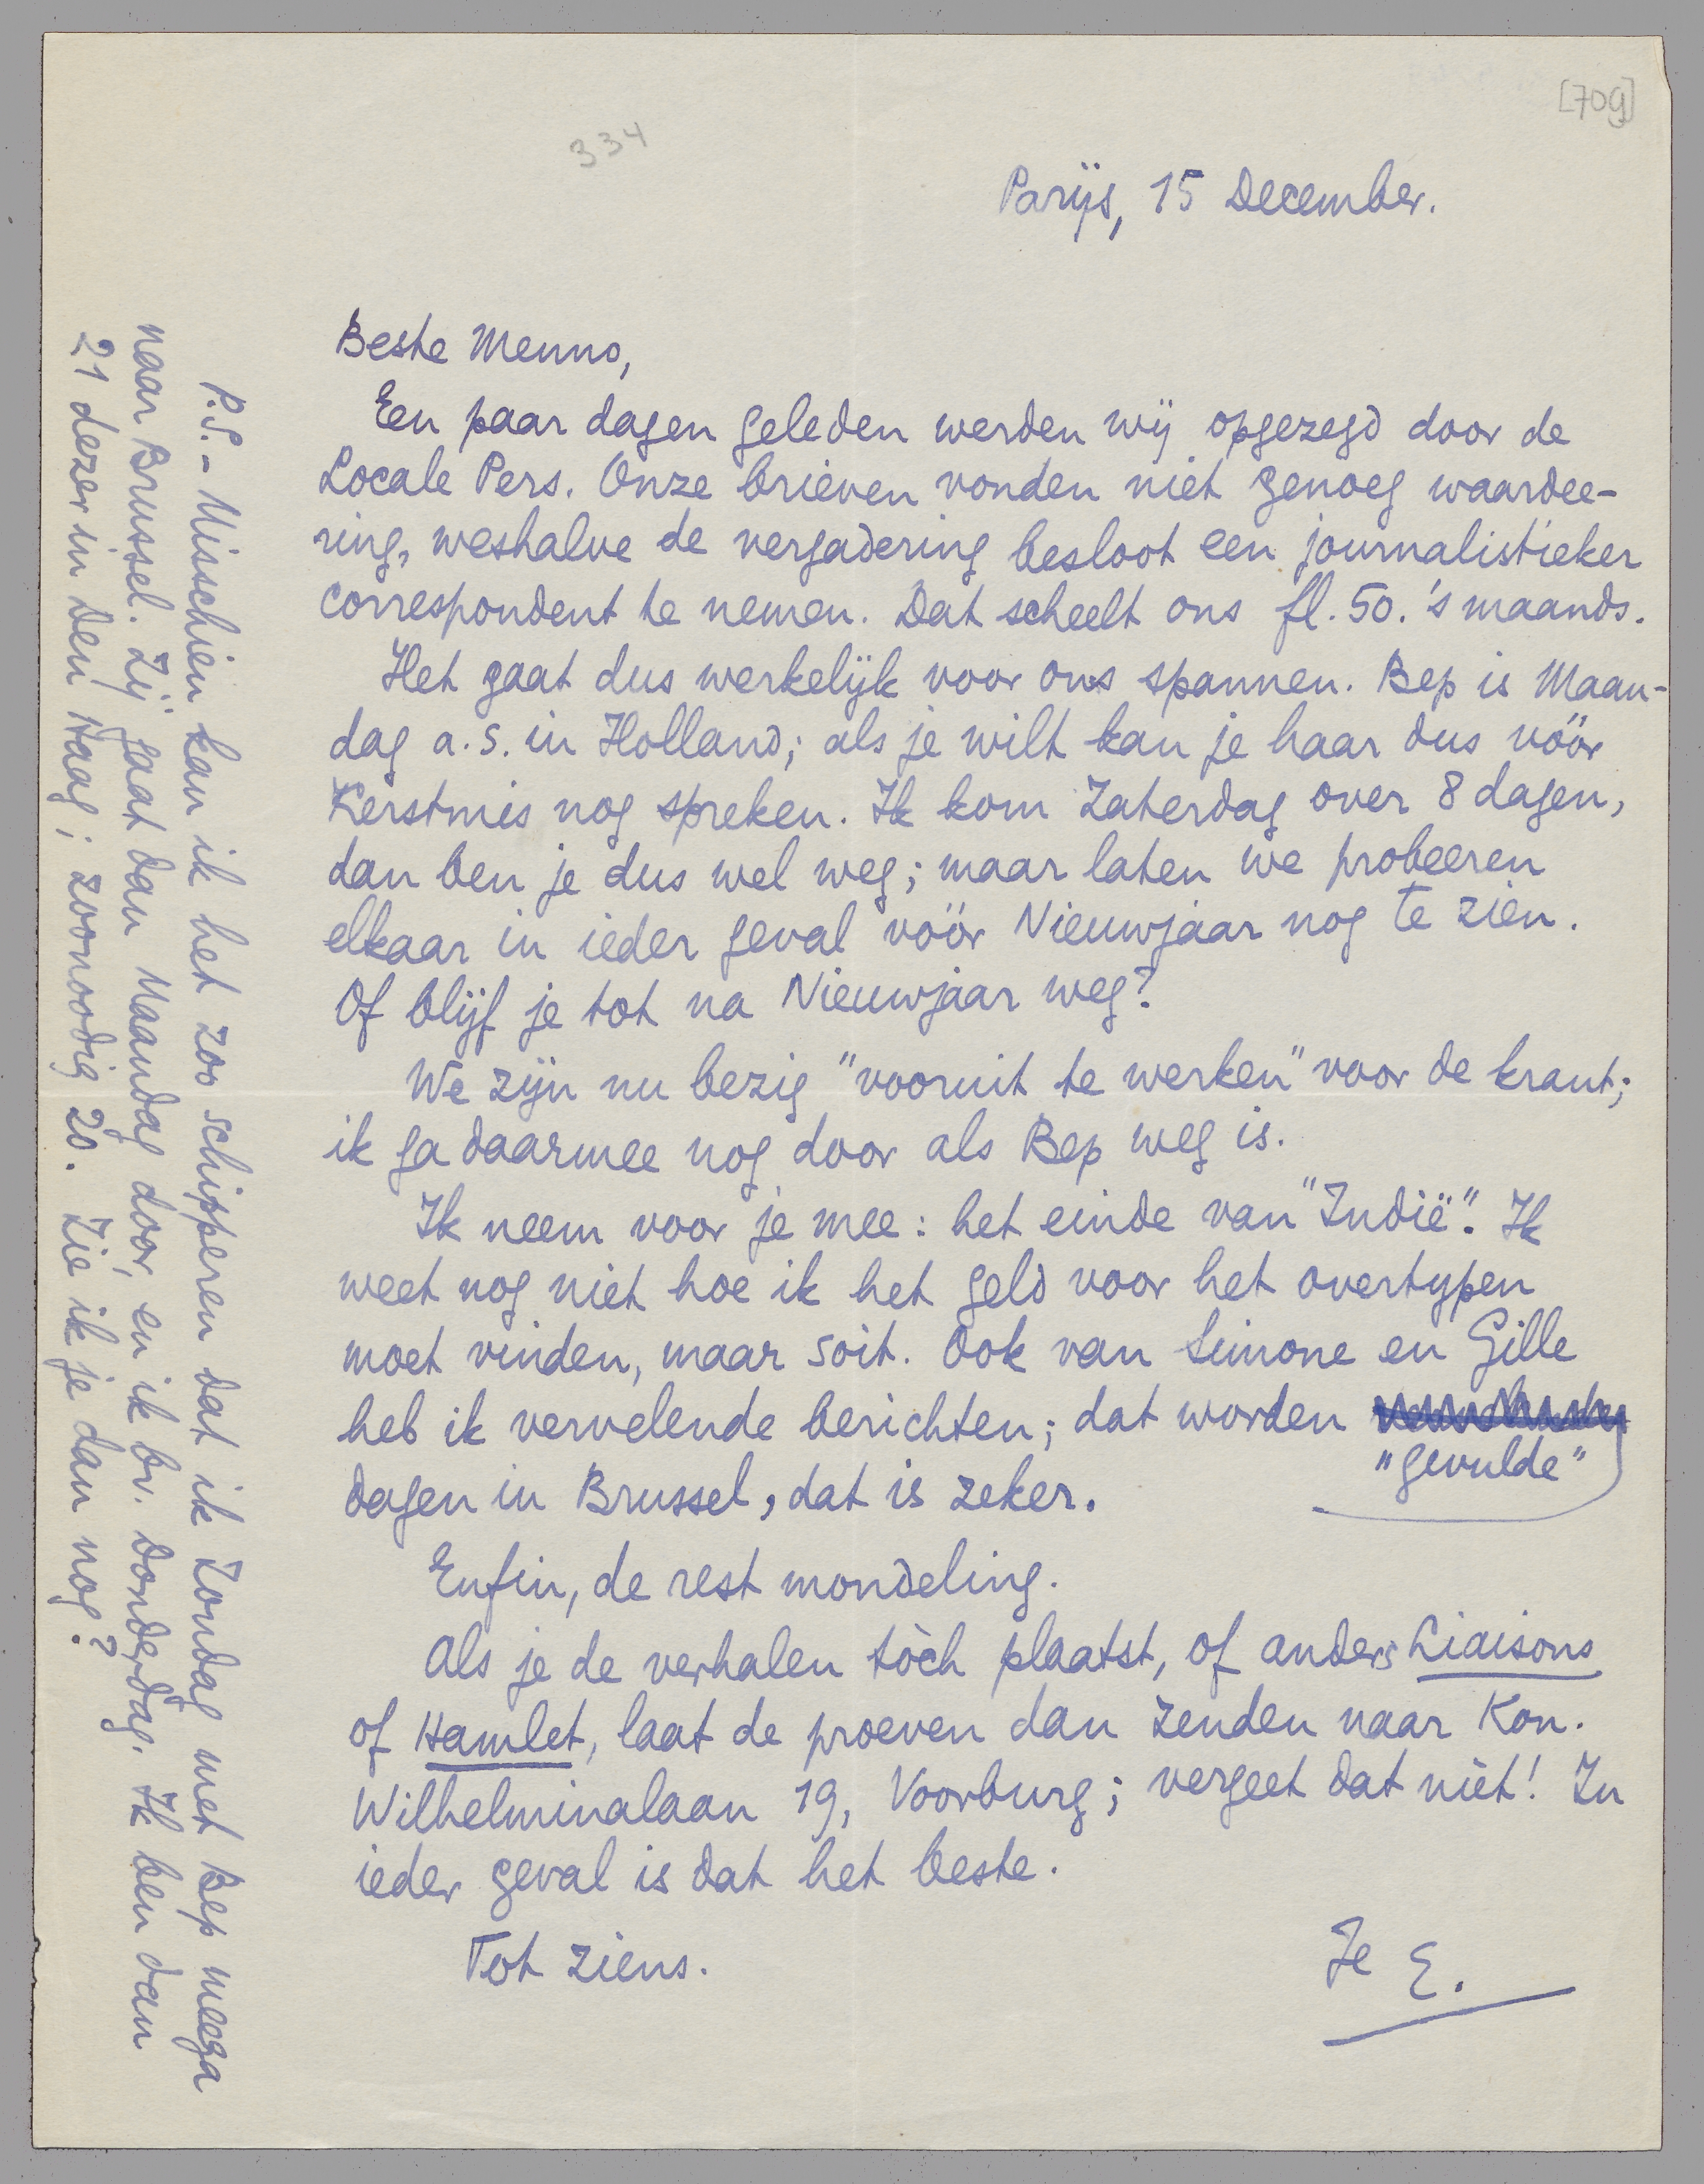 [709]
334
Parijs, 15 December.
Beste Menno,
Een paar dagen geleden werden wij opgezegd door de
Locale Pers. Onze brieven vonden niet genoeg waardee-
ring, weshalve de vergadering besloot een journalistieker
correspondent te nemen. Dat scheelt ons fl. 50. 's maands.
Het gaat dus werkelijk voor ons spannen. Bep is Maan-
dag a.s. in Holland; als je wilt kan je haar dus vóór
Kerstmis nog spreken. Ik kom Zaterdag over 8 dagen,
dan ben je dus wel weg; maar laten we probeeren
elkaar in ieder geval vóór Nieuwjaar nog te zien.
Of blijf je tot na Nieuwjaar weg?
We zijn nu bezig "vooruit te werken" voor de krant;
ik ga daarmee nog door als Bep weg is.
Ik neem voor je mee: het einde van "Indië". Ik
weet nog niet hoe ik het geld voor het overtypen
moet vinden, maar soit. Ook van Simone en Gille
heb ik vervelende berichten; dat worden
"gevulde"
dagen in Brussel, dat is zeker.
Enfin, de rest mondeling.
Als je de verhalen tòch plaatst, of anders Liaisons
of Hamlet, laat de proeven dan zenden naar Kon.
Wilhelminalaan 19, Voorburg; vergeet dat niet! In
ieder geval is dat het beste.
Tot ziens.
Je E.
P.S. - Misschien kan ik het zoo schipperen dat ik Zondag met Bep meega
naar Brussel. Zij gaat dan Maandag door, en ik bv. donderdag. Ik ben dan
21 dezer in Den Haag; zoonoodig 20. Zie ik je dan nog?